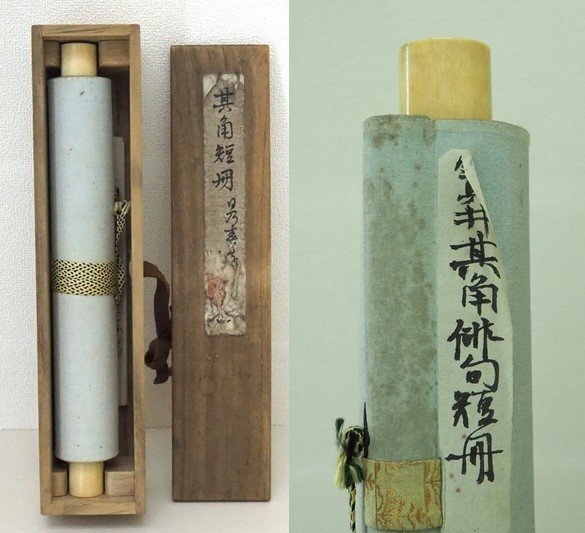 其角短冊
井其角俳句短冊